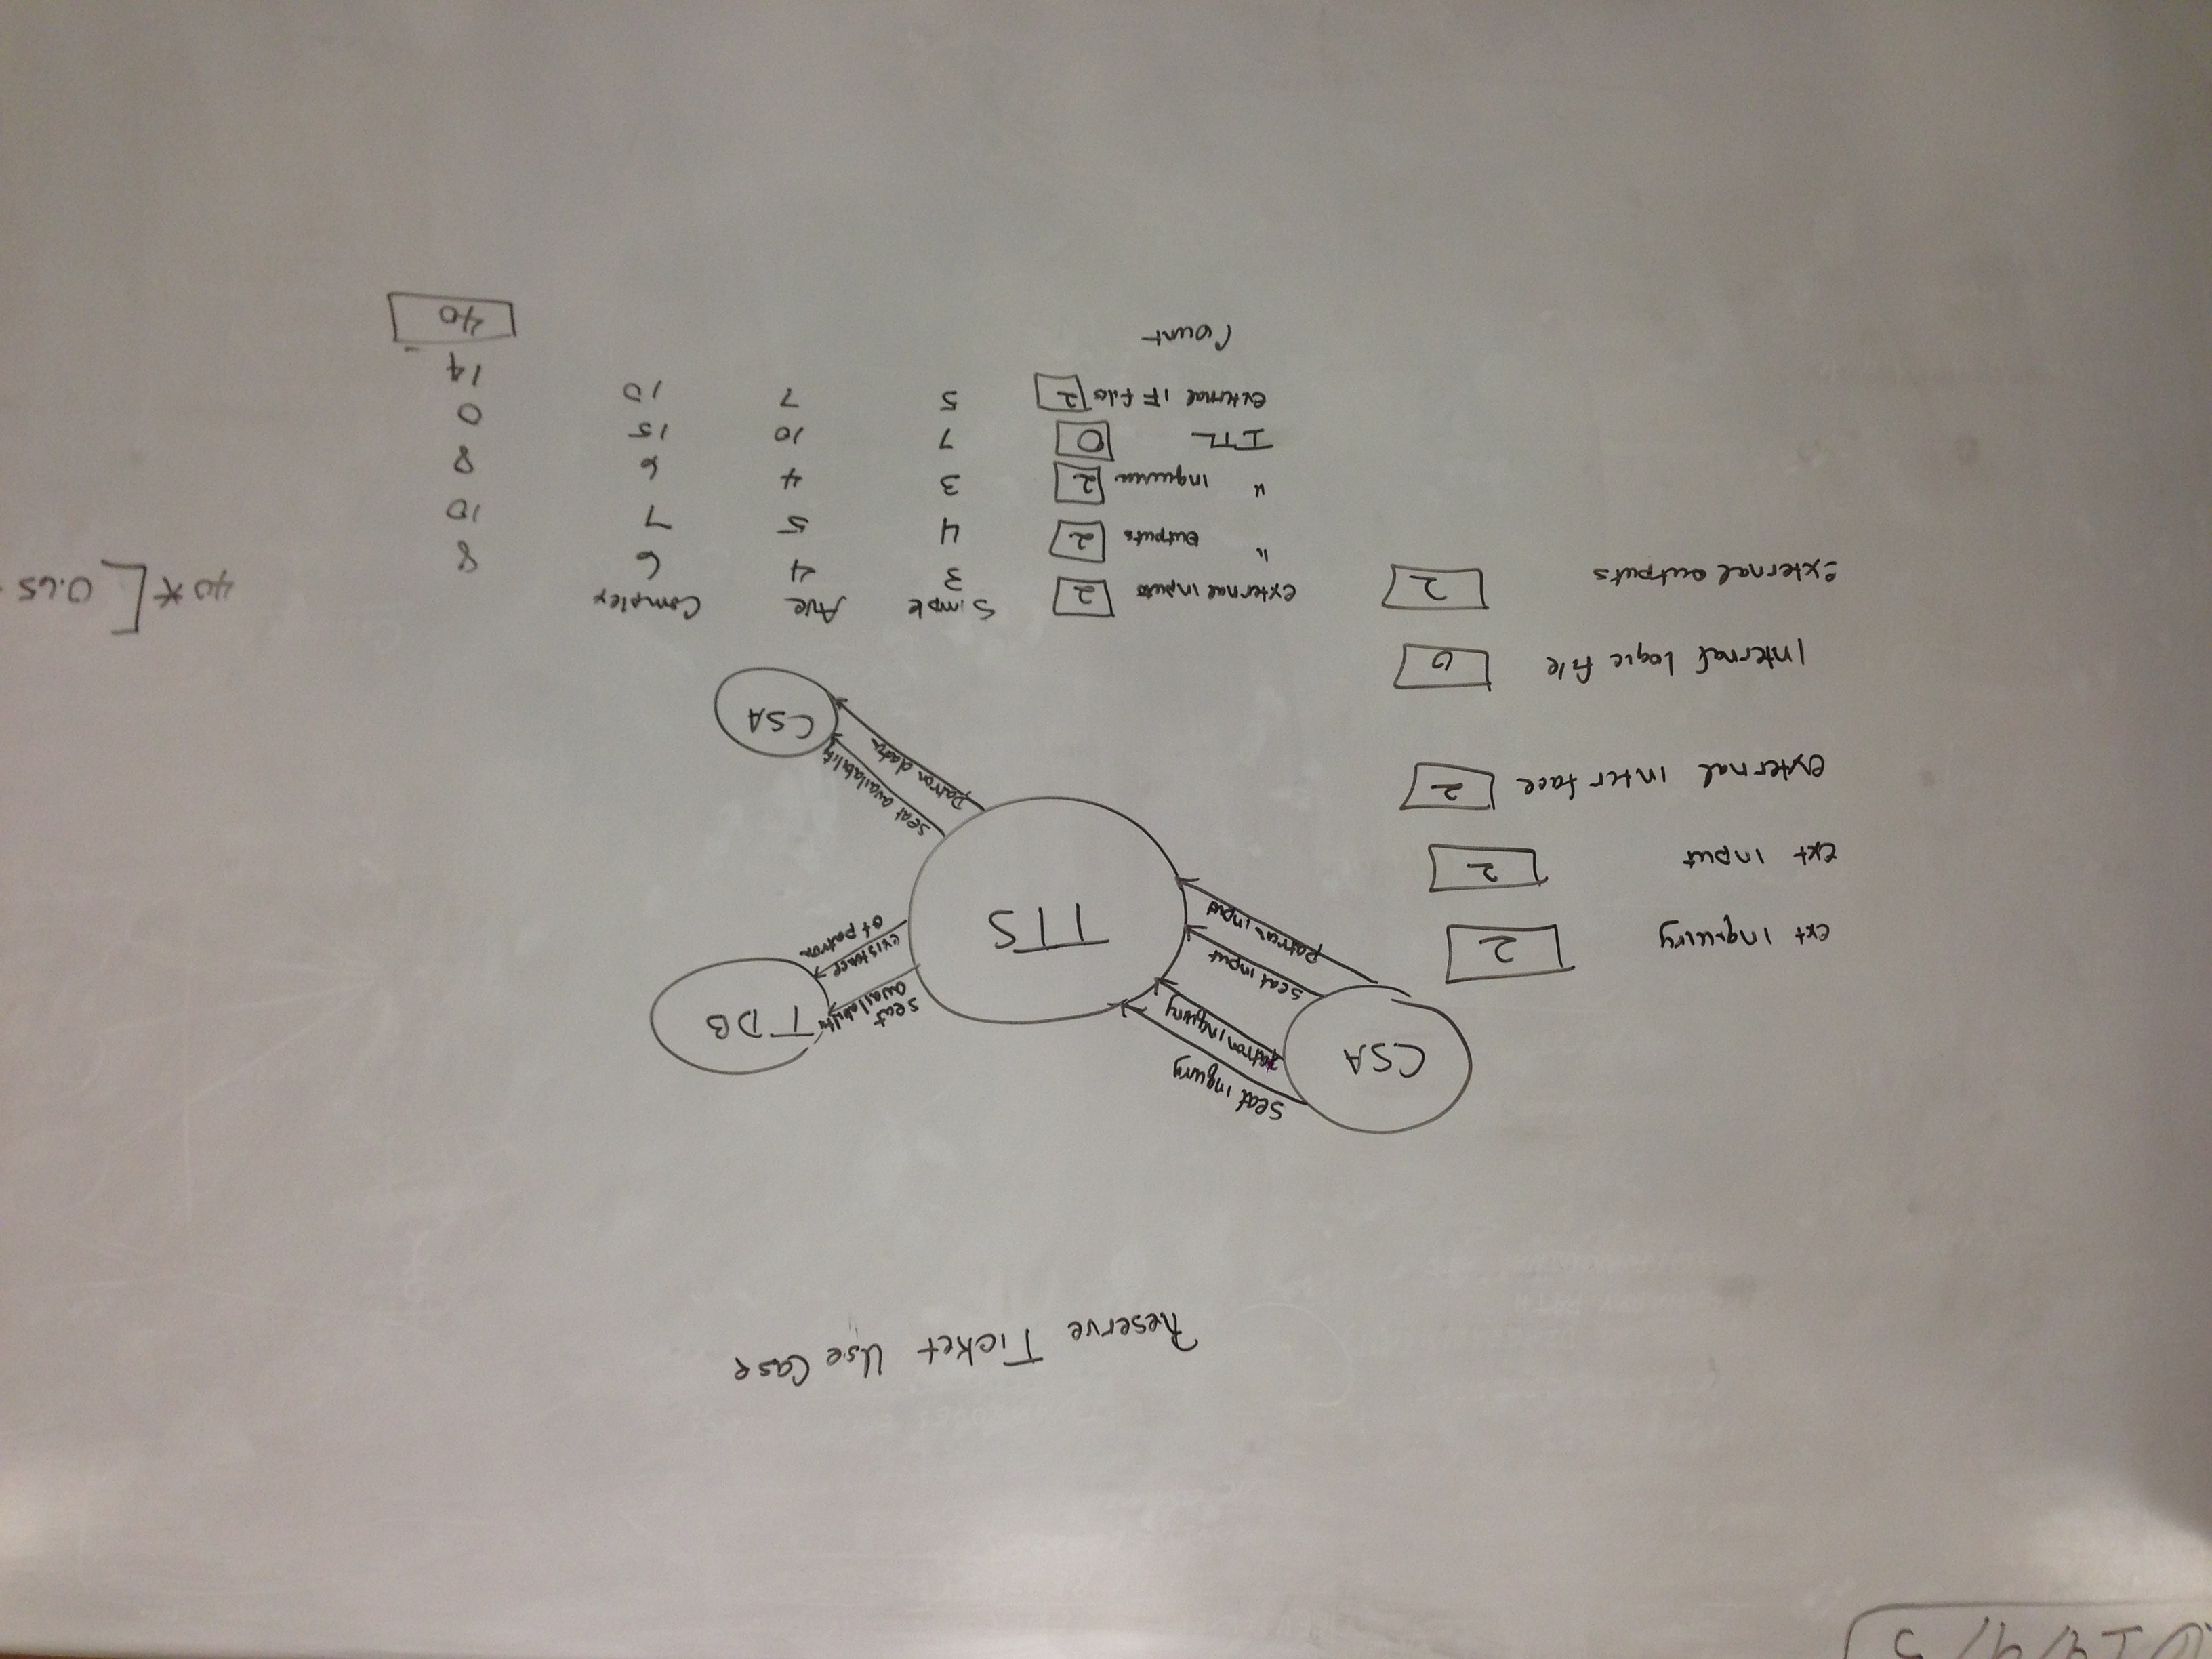 Reserve Ticket Use Case
CSA
seat inquiry
patron inquiry
seat input
patron input
TTS
seat
availability
existence
of patron
TDB
seat availability
Patron data
CSA
ext inquiry 2
ext input 2
external interface 2
Internal logic file 0
External outputs 2
Simple Ave Complex
external inputs 2 3 4 6 8
" outputs 2 4 5 7 10
" inquiries 2 3 4 6 8
ITL 0 7 10 15 0
External IF files 2 5 7 10 14
Count 40
40 * [ 0.65